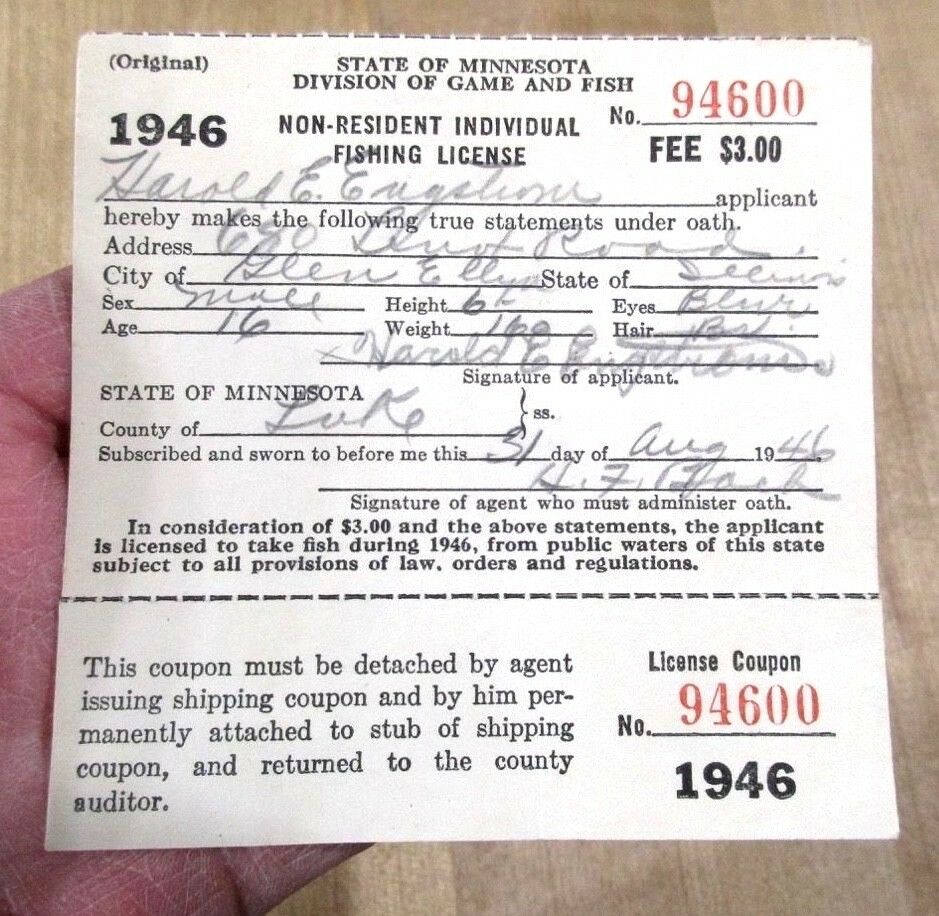 (Original)
STATE OF MINNESOTA
DIVISION OF GAME AND FISH
No. 94600
1946
NON-RESIDENT INDIVIDUAL
FISHING LICENSE
FEE $3.00
Harold E. Engstrom applicant
hereby makes the following true statements under oath.
Address Road
City of Glen Ellyn State of Illinois
Sex Male Height 6 Eyes Blue
Age 16 Weight Hair
Harold E Engstrom
Signature of applicant.
STATE OF MINNESOTA
County of Lake ss.
Subscribed and sworn to before me this 31 day of Aug 1946
H. F.
Signature of agent who must administer oath.
In consideration of $3.00 and the above statements, the applicant
is licensed to take fish during 1946, from public waters of this state
subject to all provisions of law. orders and regulations.
This coupon must be detached by agent
issuing shipping coupon and by him per-
manently attached to stub of shipping
coupon, and returned to the county
auditor.
License Coupon
No. 94600
1946